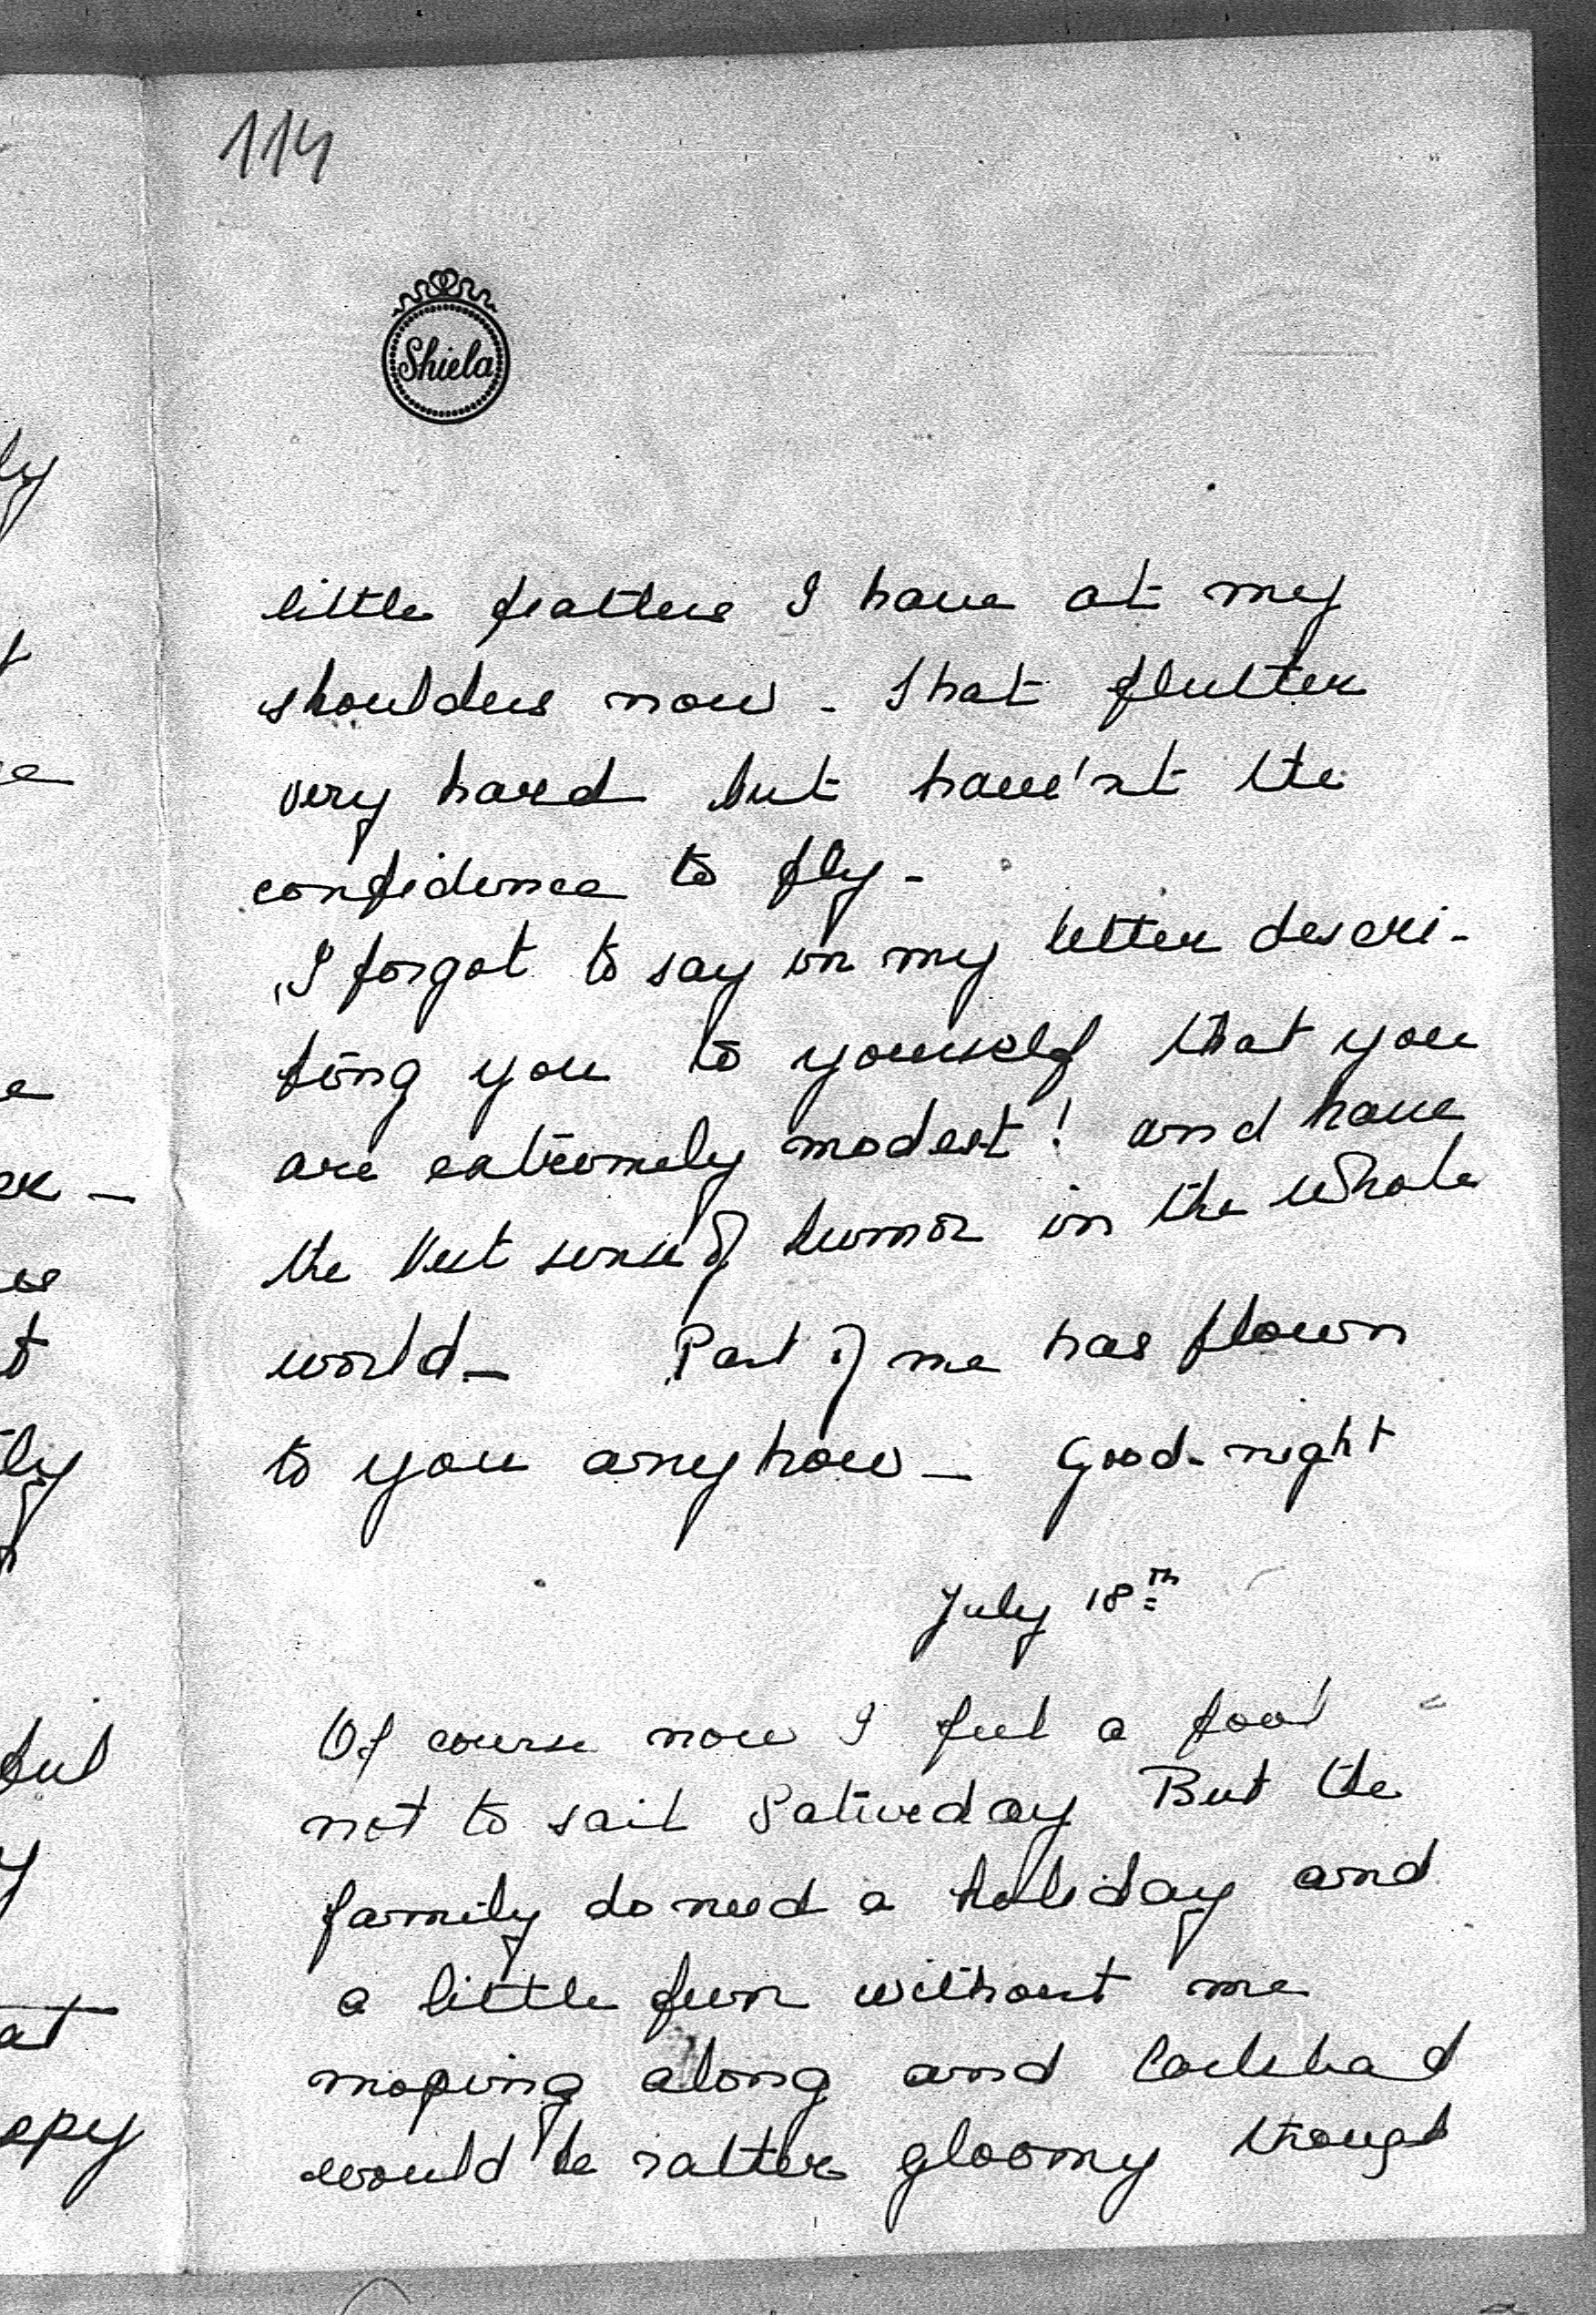 114
Shiela
little feathers I have at my
shoulders now - that flutter
very hard but have'nt the
confidence to fly -
I forgot to say in my letter descri-
bing you to yourself that you
are extremely modest! and have
the best sense of humor in the whole
world - Part of me has flown
to you anyhow - Good-night
July 18th
Of course now I feel a fool
not to sail Saturday But the
family do need a holiday and
a little fun without me
moping along and Carlsbad
would be rather gloomy though